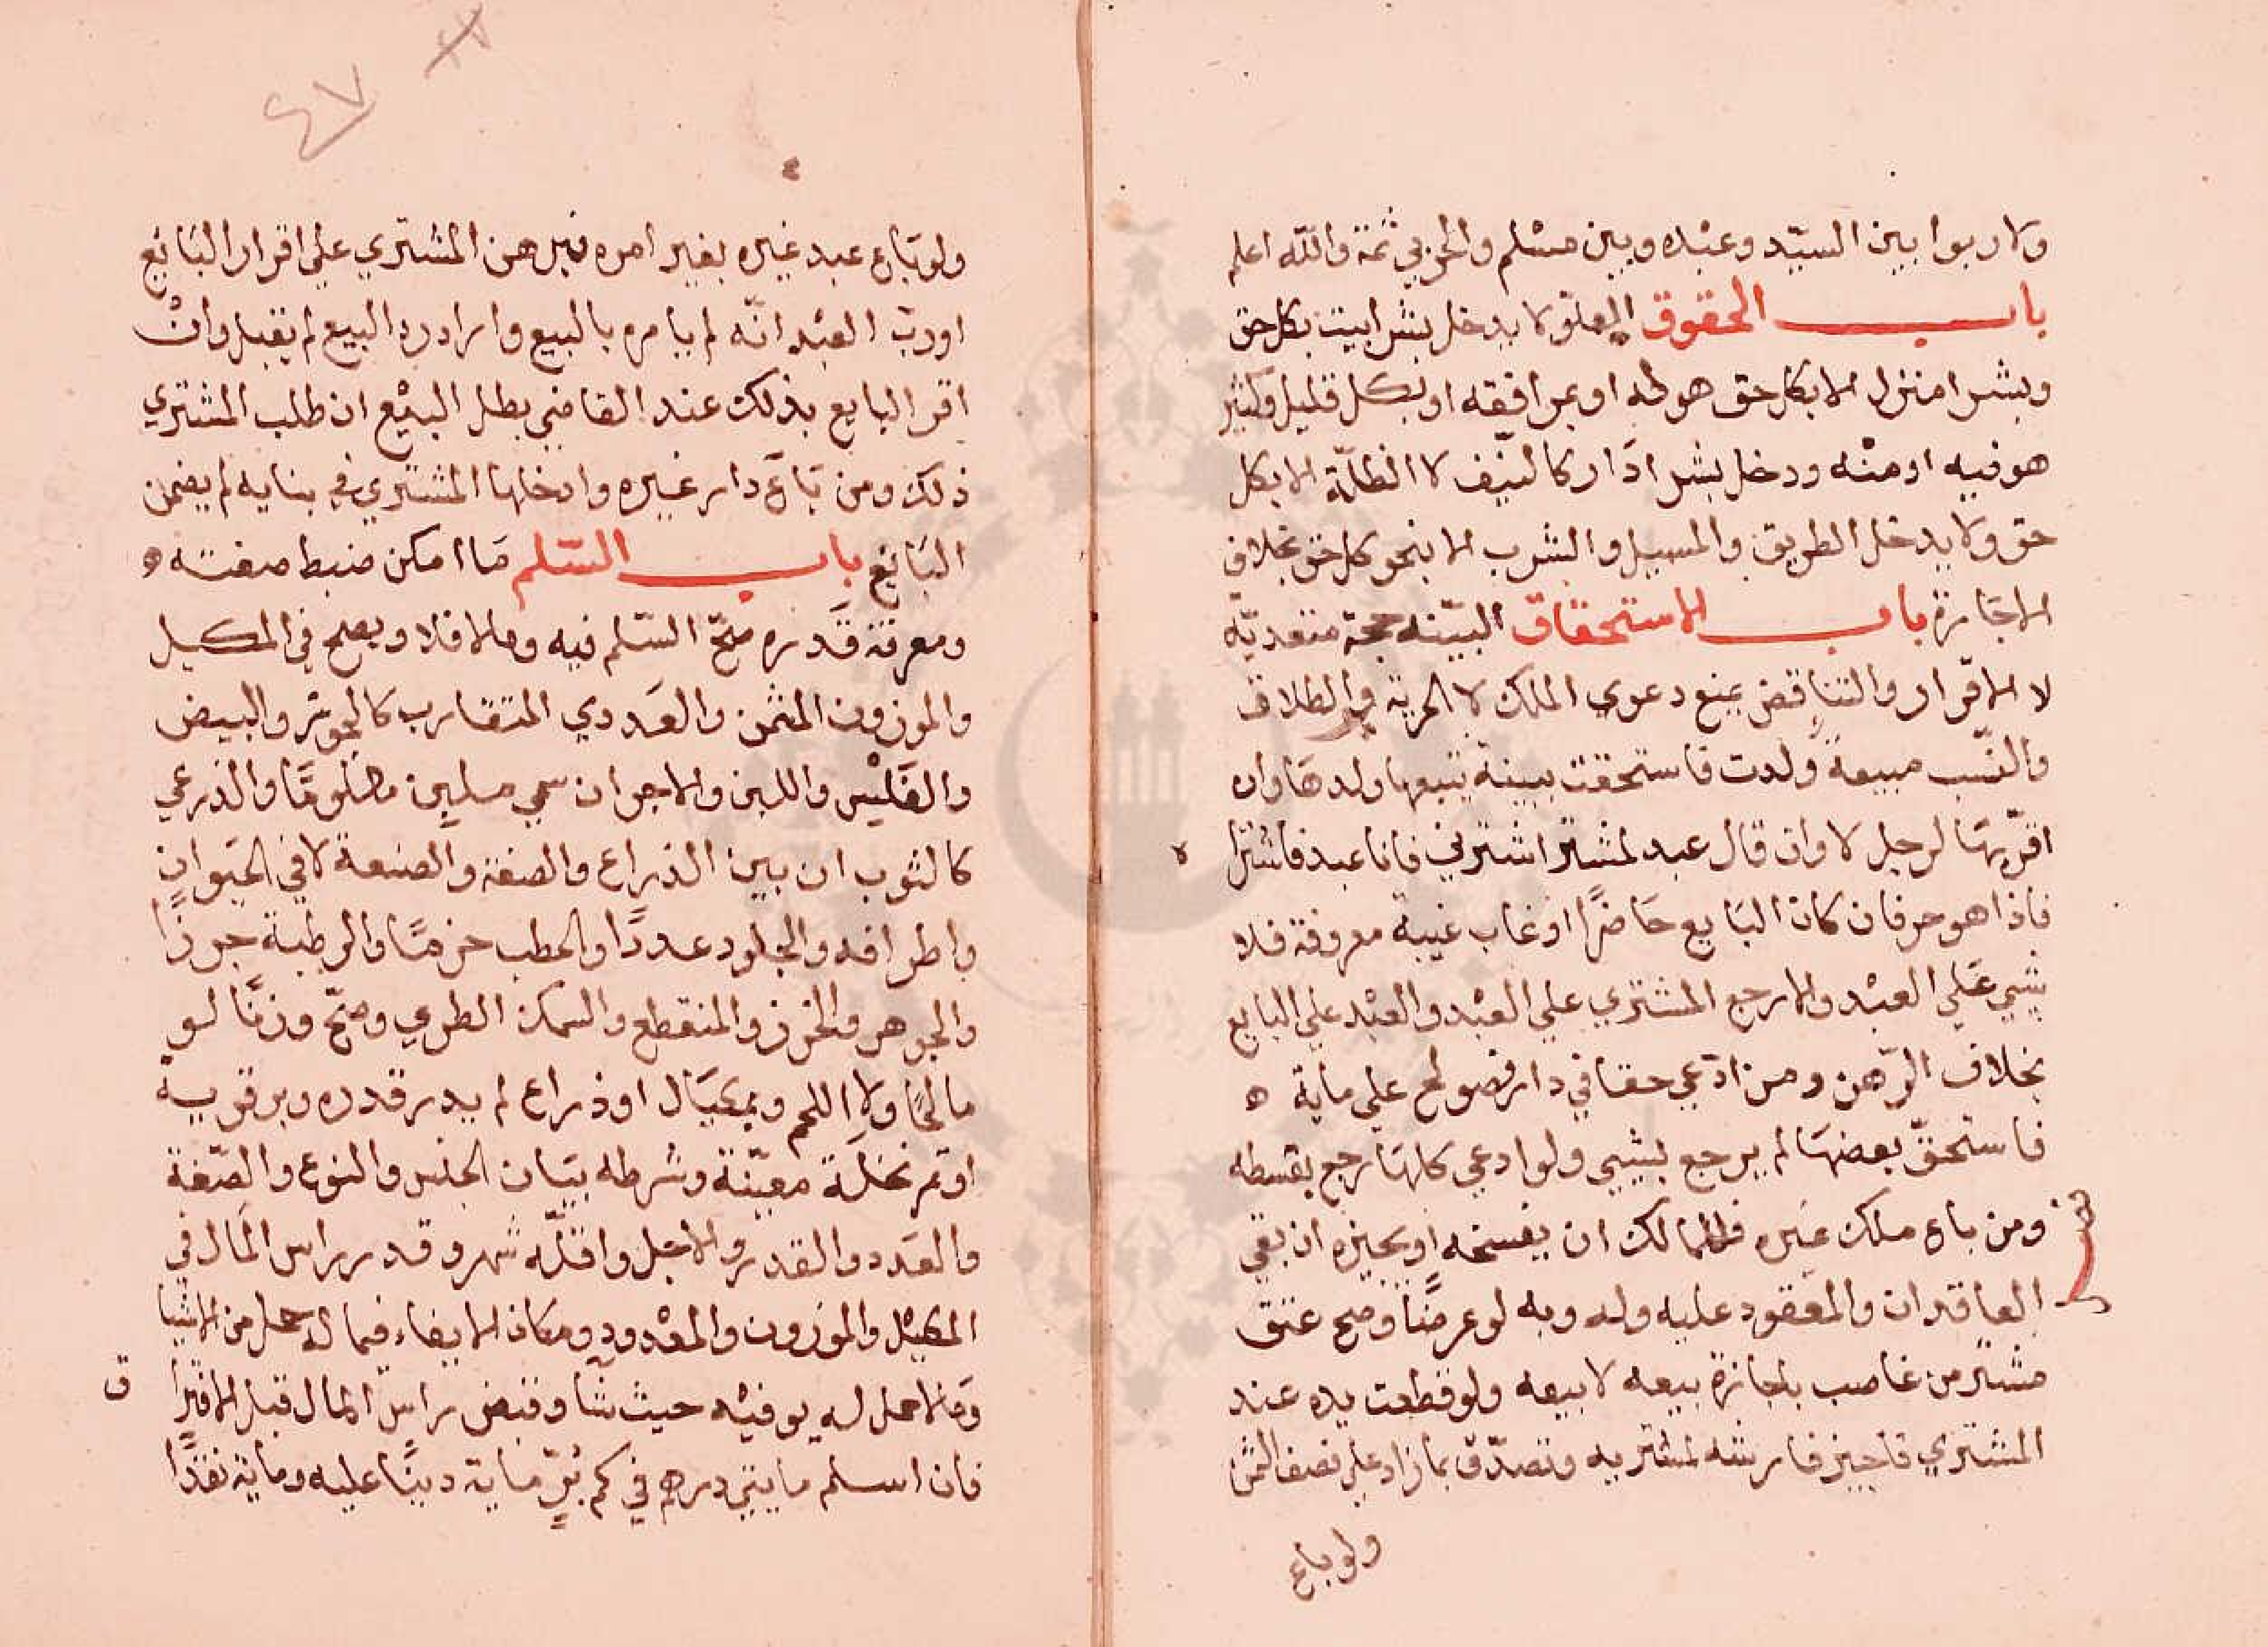 ولا ربوا بين السيّد وعبْده وبين مسْلم والحربي ثمّة والله اعلم
باب الحقوق العلو لا يدخل بشرا بيت بكل حق
وبشرا منزل الا بكل حق هو له او بمرافقه او بكل قليل وكثير
هو فيه او منْه ودخل بشرا دَار كالكنيف لا الظلّة الا بكل
حق ولا يدخل الطريق والمسيل والشرب الا بنحو كل حق بخلاف
الاجَارة باب الاستحقاق البيّنه حجة متعديّة
لا الاقرار والتناقض يمنع دعوي الملك لا الحرية والطلاق
والنّسب مبيعة ولدت فاستحقت ببينة يتبعها ولدهَا وان
اقرّ بهَا لرجل لا وان قال عبد لمشتر اشترني فانا عبد فاشتراه
فاذا هو حر فان كان البَايع حَاضرًا او غاب غيبة معروفة فلا
شي عَلي العبْد والا رجع المشتري علي العبْد والعبْد علي البايع
بخلاف الرّهن ومن ادّعي حقا في دار فصولح علي ماية ه
فاستحقّ بعضهَا لم يرجع بشيي ولو ادعي كلهَا رجع بقسطه
ومن باع ملك غيره فللمالك ان يفسخه او يجيزه ان بقي
العاقدان والمعقود عليه وله وبه لو عرضًا وصح عتق
مشتر من غاصب باجازة بيعه لا بيعه ولو قطعت يده عند
المشتري فاجيز فارشه لمشتريه وتصدّق بما زاد علي نصف الثمن
ولو باع
٤٧
ولو بَاع عبد غيره بغير امره فبرهن المشتري علي اقرار البَايع
او ربّ العبْد انّه لم يامره بالبيع واراد رد البيع لم يقبل وانْ
اقر البايع بذلك عند القاضي بطل البيْع ان طلب المشتري
ذلك ومن بَاعَ دار غيره وادخلها المشتري في بنايه لم يضمن
البَايع باب السّلم مَا امكن ضبط صفته ه
ومعرفة قَدره صحّ السّلم فيه وما لا فلا ويصح في المكيل
والموزون المثمن والعَددي المتقارب كالجوز والبيض
والفَلْس واللبن والاجر ان سمي ملبن معلومًا والذرعي
كالثوب ان بين الذراع والصفة والصنعة لا في الحيَوان
واطرافه والجلود عددًا والحطب حزمًا والرطبة جرزًا
والجوهر والخرز والمنقطع والسمك الطري وصحّ وزنًا لو
مالحًا ولا اللحم وبمكيَال او ذراع لم يدر قدره وبر قرية
او تمر نخلَة معيّنة وشرطه بيَان الجنس والنوع والصّفة
والعَدد والقدر والاجل واقلّه شهر وقدر راس المَال في
المكيْل والموزون والمعْدود ومكان الايفاء فيما له حمل من الاشيا
وما لا حمل له يوفيْه حيث شا وقبض راس المال قبل الافترا
ق
فان اسلم مايتي درهم في كر بُرّ ماية دينًا عليه وماية نقدًا